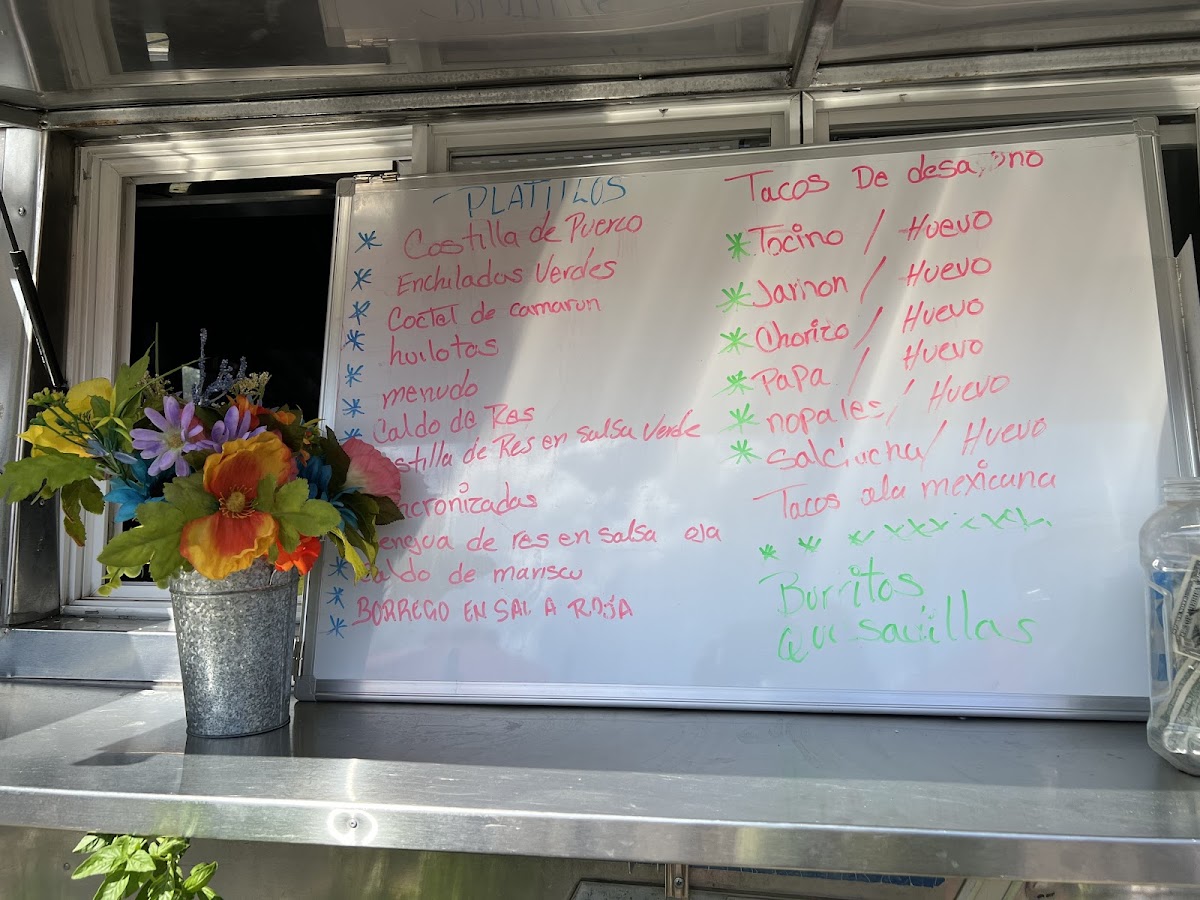 PLATILLOS
* Costilla de Puerco
* Enchiladas Verdes
* Coctel de camaron
* huilotas
* menudo
* Caldo de Res
* ostilla de Res en salsa Verde
ncronizadas
engua de res en salsa oja
* aldo de marisco
* BORREGO EN SAL A ROJA
*
Tacos De desa no
* Tocino / Huevo
* Jamon / Huevo
* Chorizo / Huevo
* Papa / Huevo
* nopales / Huevo
* Salchicha / Huevo
Tacos ala mexicana
Burritos
Quesadillas